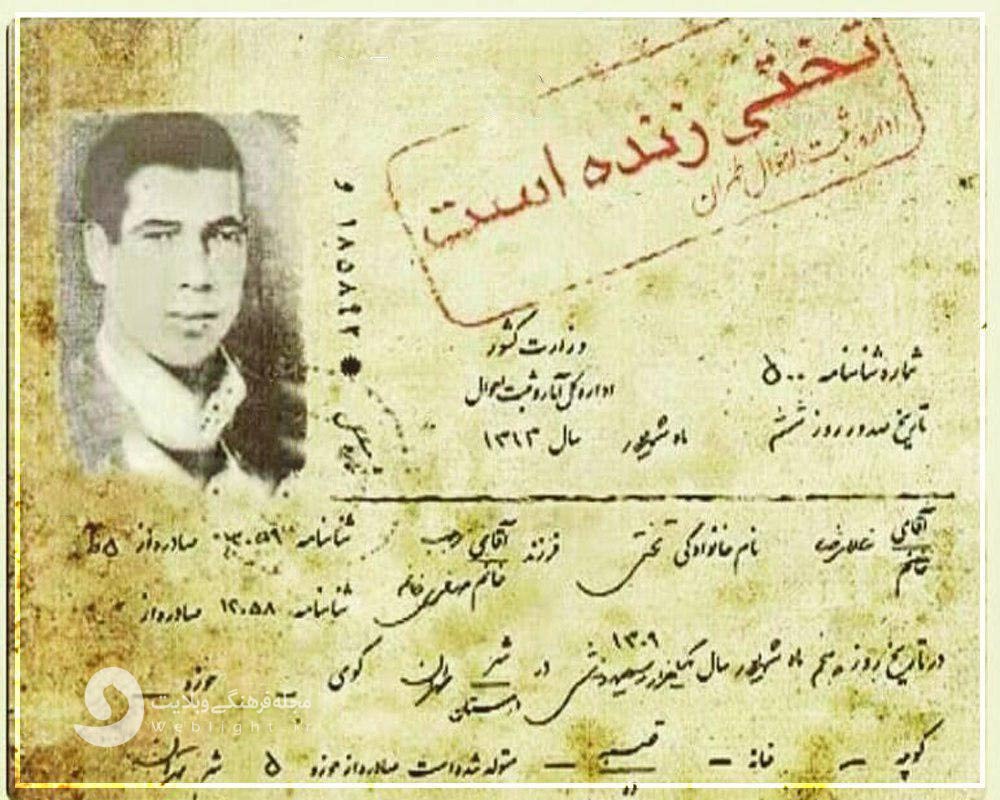 تختی زنده است
اداره ثبت احوال طهران
و ۱۸۵۸۴۲
وزارت کشور
اداره کل آمار و ثبت احوال
شماره شناسنامه ۵۰۰
تاریخ صدور روز ششم ماه شهریور سال ۱۳۱۳
آقای خانم غلامرضا نام خانوادگی تختی فرزند آقای رجب شناسنامه ۱۳۰۵۹ صادره از ۵ ط
خانم شناسنامه ۱۲۰۵۸ صادره از
در تاریخ روز پنجم ماه شهریور سال ۱۳۰۹ یکهزار و سیصد و نه شمسی در شهر طهران کوی — حوزه —
شهرستان
کوچه — خانه — قصبه ده — متولد شده است صادره از حوزه ۵ شهر طهران
مجله فرهنگی وبلایت
Weblight.ir